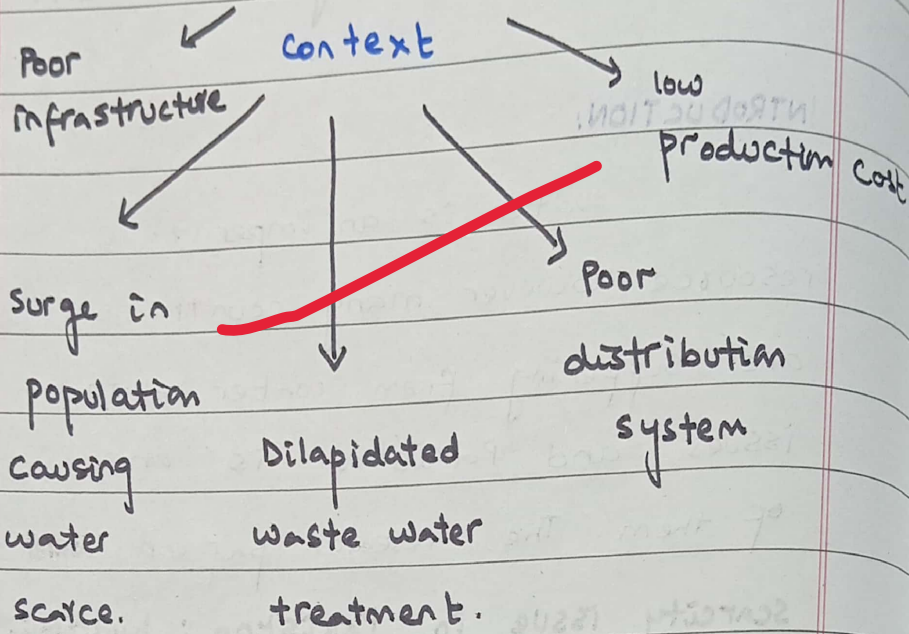 Context
Poor
infrastructure
low
production cost
Surge in
population
causing
water
scarce.
Dilapidated
waste water
treatment.
Poor
distribution
system